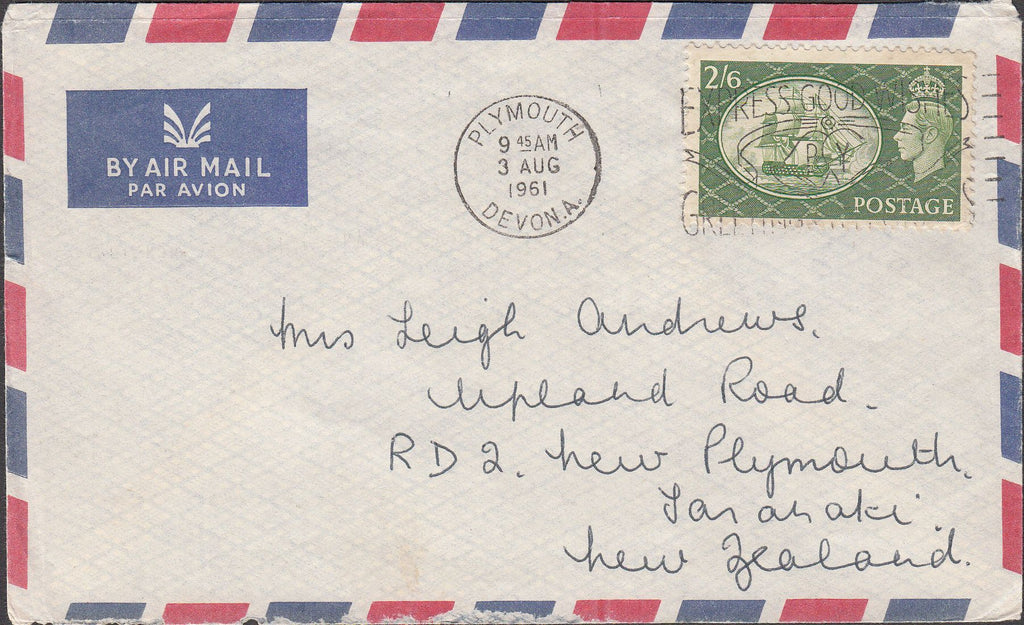 BY AIR MAIL
PAR AVION
PLYMOUTH
9 45 AM
3 AUG
1961
DEVON.A.
2/6
POSTAGE
EXPRESS GOOD WISHES
BY
GREETINGS
Mrs Leigh Andrews.
Upland Road.
RD 2. New Plymouth.
Taranaki.
New Zealand.